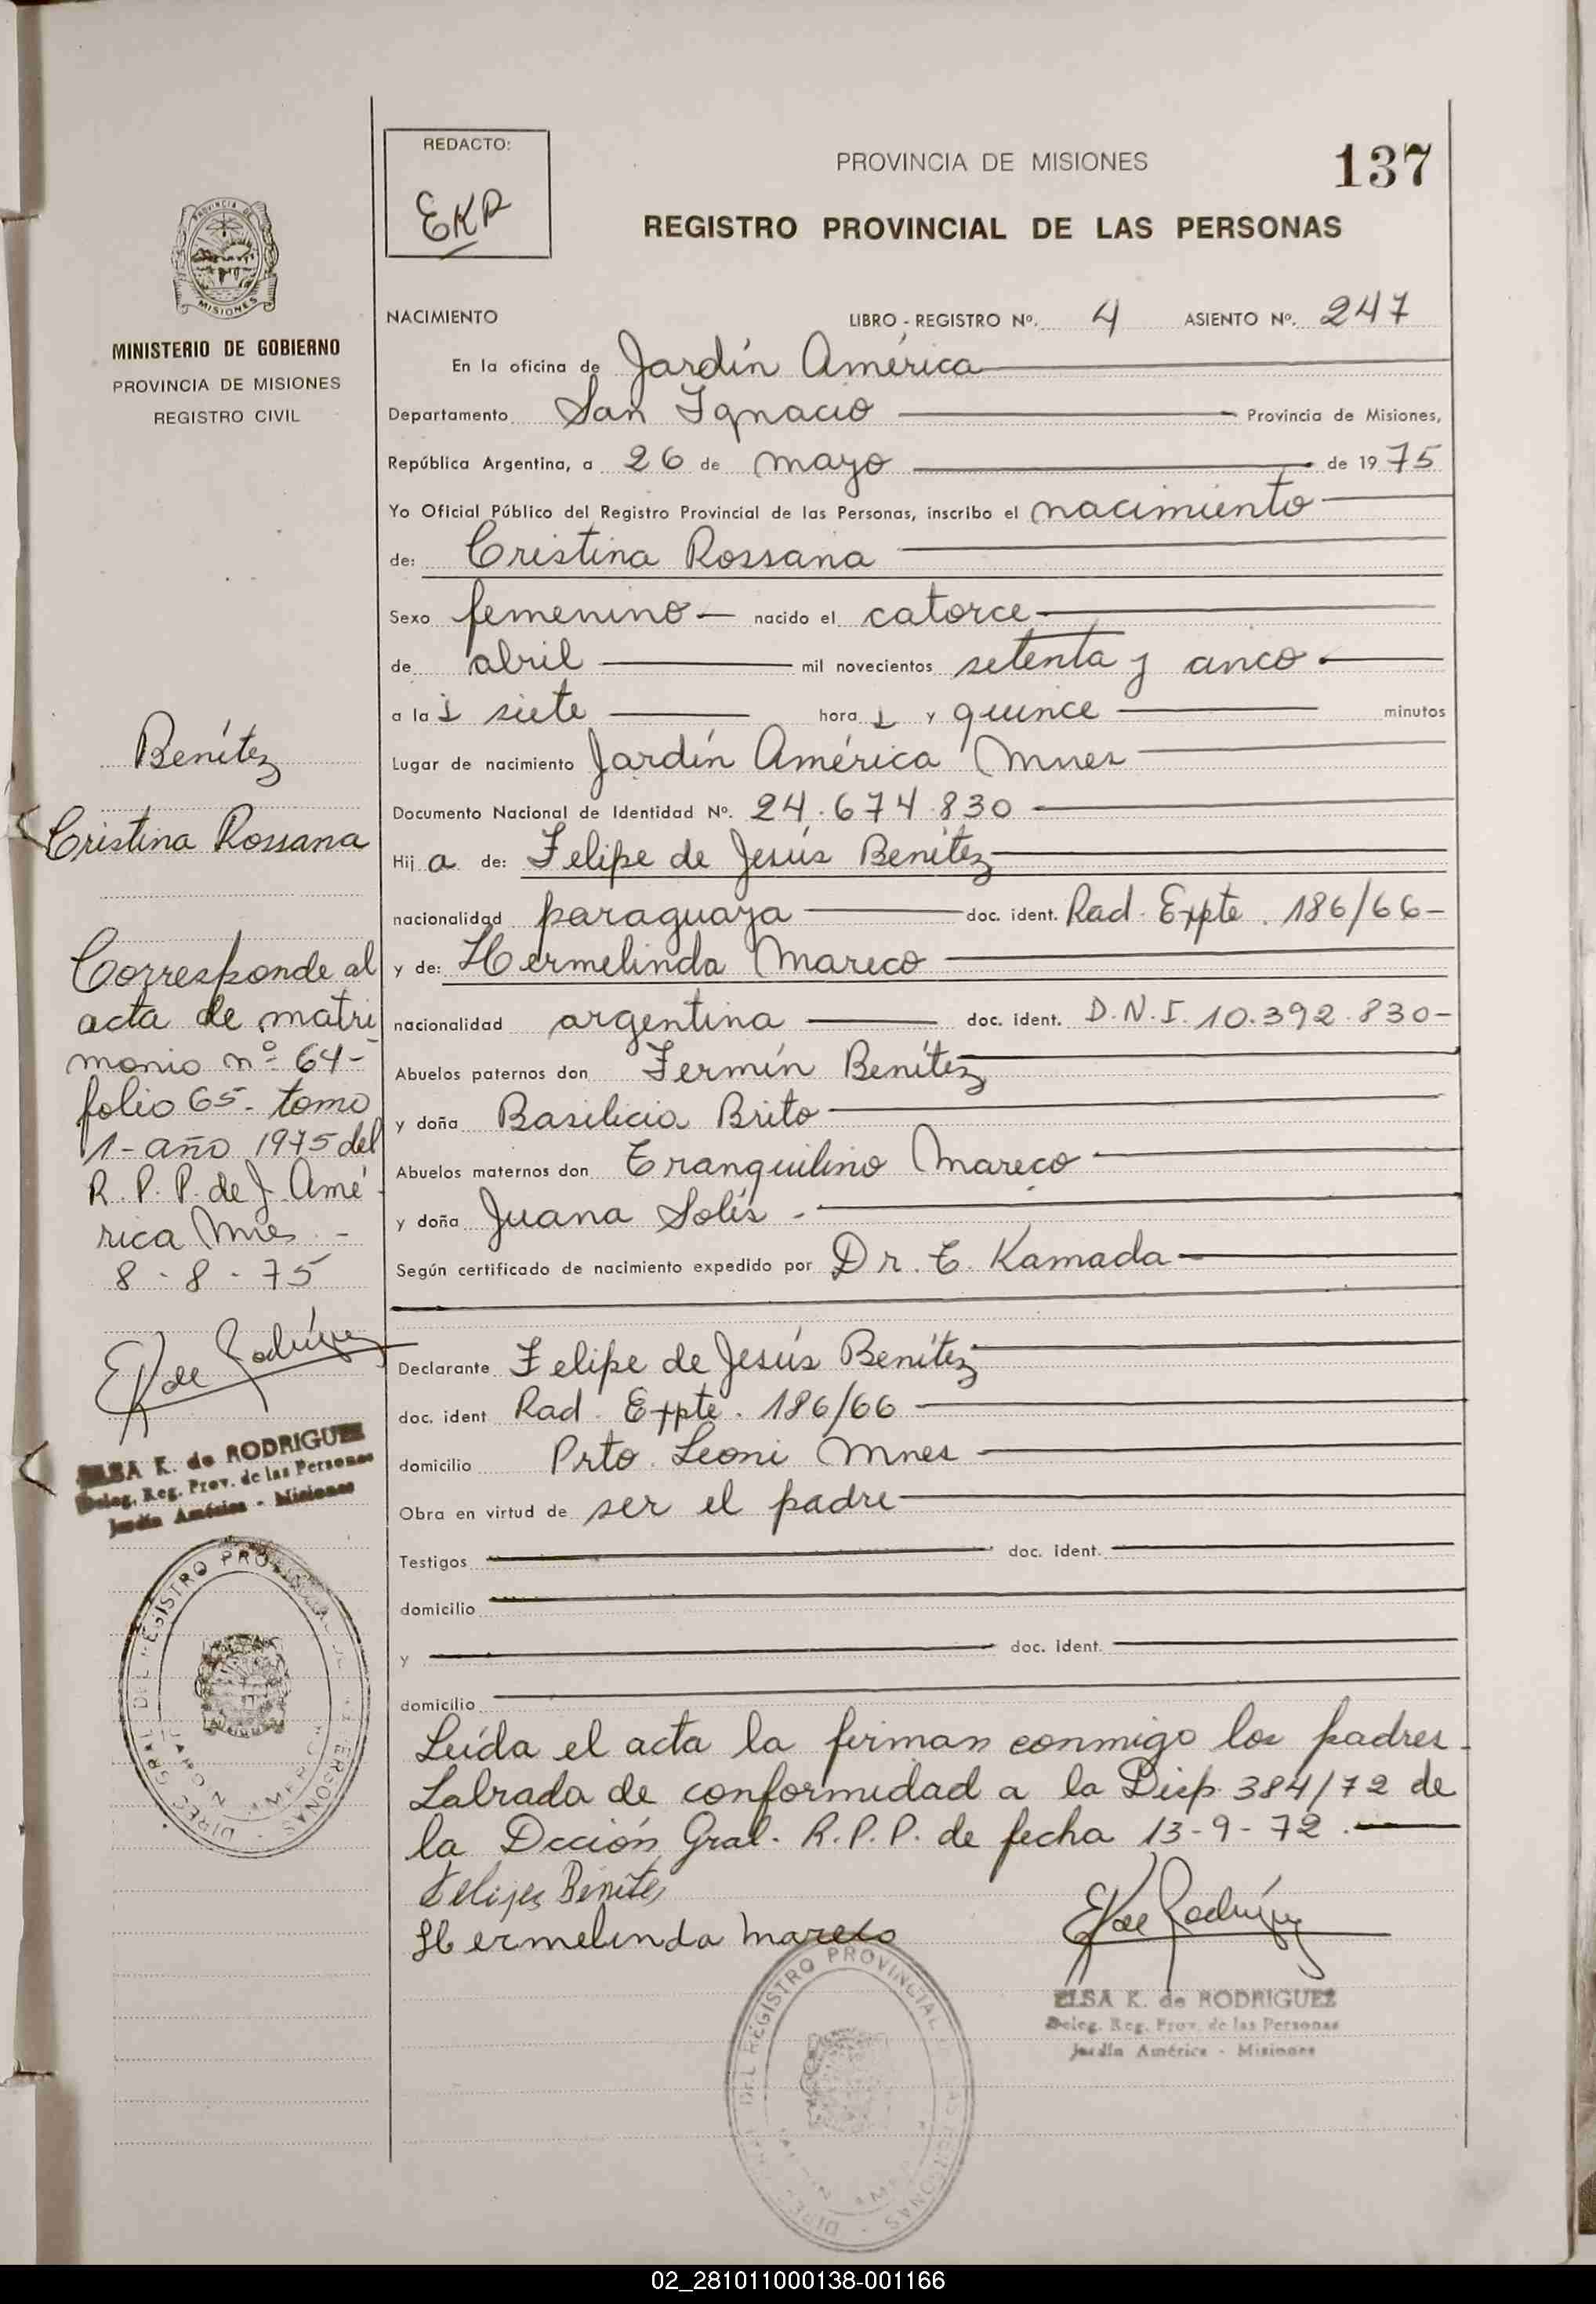 REDACTO:
EKR
PROVINCIA DE MISIONES
137
REGISTRO PROVINCIAL DE LAS PERSONAS
PROVINCIA DE
MISIONES
MINISTERIO DE GOBIERNO
PROVINCIA DE MISIONES
REGISTRO CIVIL
NACIMIENTO LIBRO - REGISTRO Nº. 4 ASIENTO Nº. 247
En la oficina de Jardín América
Departamento San Ignacio Provincia de Misiones,
República Argentina, a 26 de mayo de 1975
Yo Oficial Público del Registro Provincial de las Personas, inscribo el nacimiento
de: Cristina Rossana
Sexo femenino nacido el catorce
de abril mil novecientos setenta y cinco
a la s siete hora s y quince minutos
Lugar de nacimiento Jardín América Mnes
Documento Nacional de Identidad Nº. 24.674.830
Hij a de: Felipe de Jesús Benítez
nacionalidad paraguaya doc. ident. Rad. Expte. 186/66-
y de: Hermelinda Mareco
nacionalidad argentina doc. ident. D.N.I. 10.392.830-
Abuelos paternos don Fermín Benítez
y doña Basilicia Brito
Abuelos maternos don Tranquilino Mareco
y doña Juana Solís -
Según certificado de nacimiento expedido por Dr. T. Kamada
Declarante Felipe de Jesús Benítez
doc. ident Rad. Expte. 186/66
domicilio Prto. Leoni Mnes
Obra en virtud de ser el padre
Testigos doc. ident.
domicilio
y doc. ident.
domicilio
Leída el acta la firman conmigo los padres.
Labrada de conformidad a la Disp. 384/72 de
la Dcción Gral. R.P.P. de fecha 13-9-72.
Felipes Benites
Hermelinda Mareco
EK de Rodríguez
ELSA K. de RODRIGUEZ
Deleg. Reg. Prov. de las Personas
Jardín América - Misiones
DIREC. GRAL. DEL REGISTRO PROVINCIAL DE LAS PERSONAS
JARDIN AMERICA
Benítez
Cristina Rossana
Corresponde al
acta de matri
monio nº 64-
folio 65- tomo
1- año 1975 del
R.P.P. de J. Amé
rica Mnes. -
8-8-75
EK de Rodríguez
ELSA K. de RODRIGUEZ
Deleg. Reg. Prov. de las Personas
Jardín América - Misiones
DIREC. GRAL. DEL REGISTRO PROVINCIAL DE LAS PERSONAS
JARDIN AMERICA
02_281011000138-001166